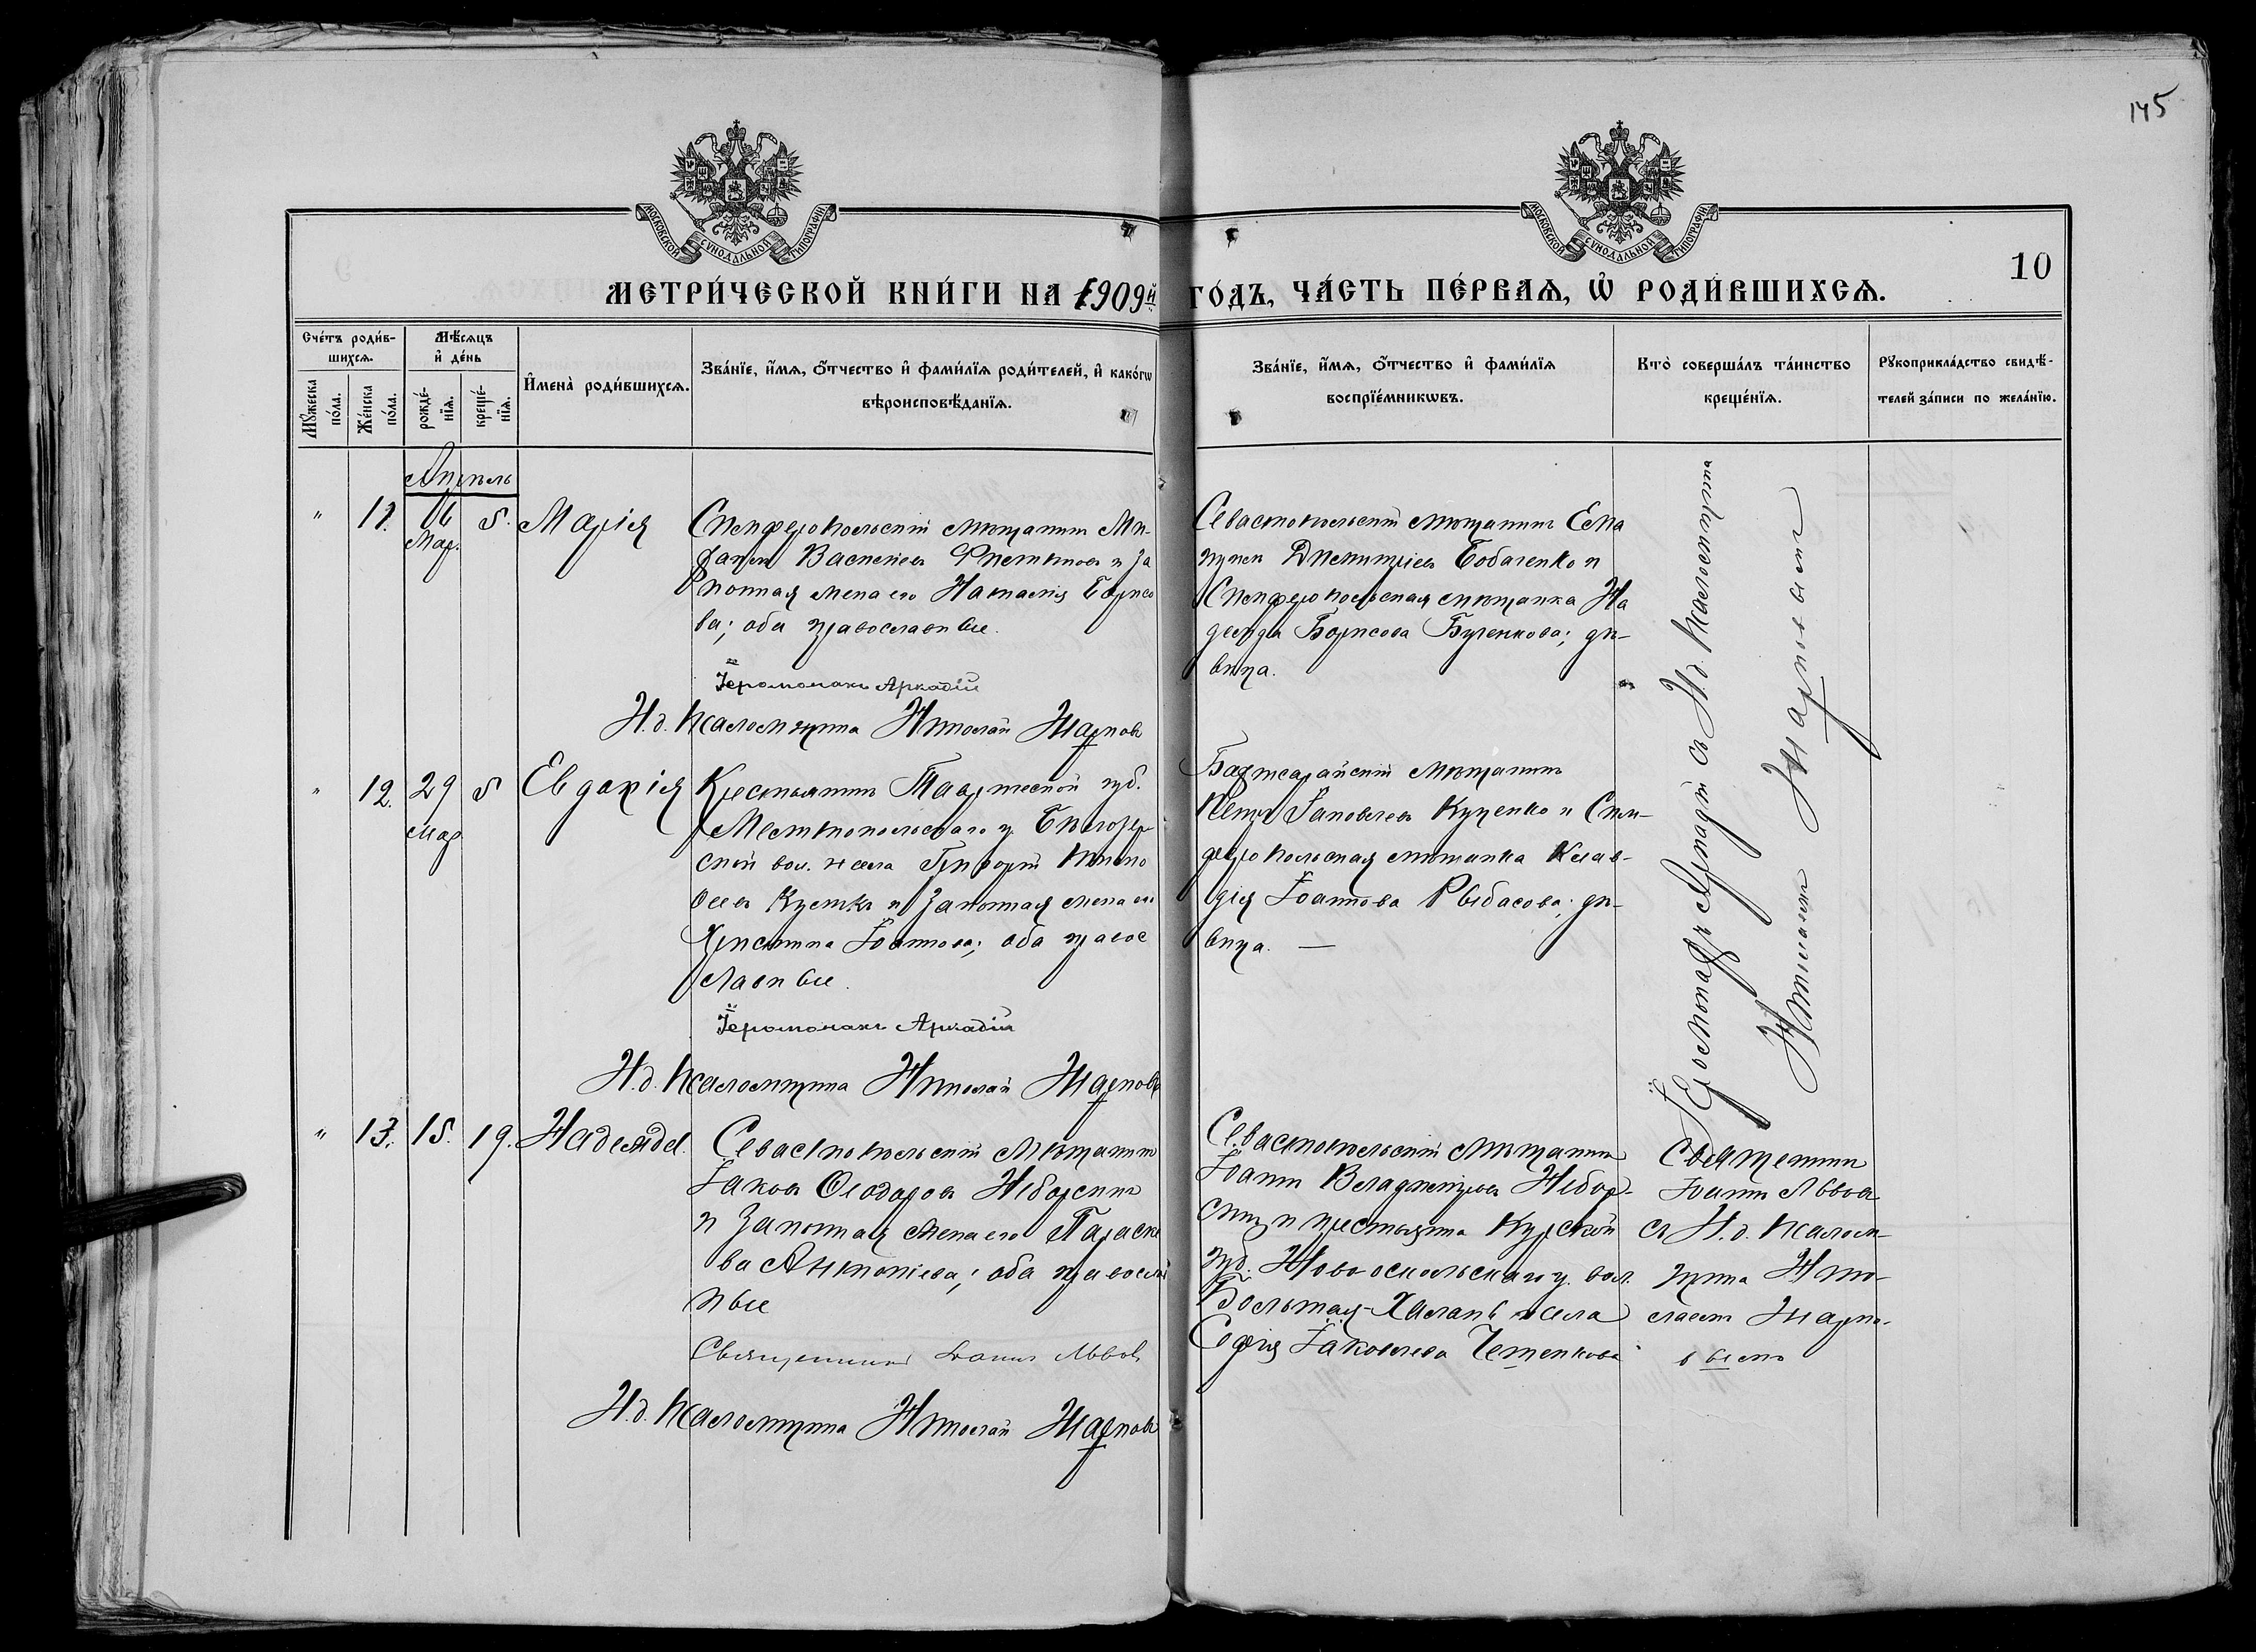 145
МОСКОВСКОЙ СѴНОДАЛЬНОЙ ТИПОГРАФІИ
МОСКОВСКОЙ СѴНОДАЛЬНОЙ ТИПОГРАФІИ
10
МЕТРИ́ЧЕСКОЙ КНИ́ГИ НА 1909й ГО́ДЪ, ЧА́СТЬ ПЕ́РВАѦ, Ѡ҆ РОДИ́ВШИХСѦ.
Сче́тъ роди́в-
шихсѧ.
Мꙋ́жеска по́ла.
Же́нска по́ла.
Мѣ́сѧцъ
и҆ де́нь
рожде́-
нїѧ.
креще́-
нїѧ.
И҆мена̀ роди́вшихсѧ.
Зва́нїе, и҆́мѧ, ѻ҆́тчество и҆ фами́лїѧ роди́телей, и҆ како́гѡ
вѣроисповѣ́данїѧ.
Зва́нїе, и҆́мѧ, ѻ҆́тчество и҆ фами́лїѧ
воспрїе́мникѡвъ.
Кто̀ соверша́лъ та́инство
креще́нїѧ.
Рꙋкоприкла́дство свидѣ́-
телей за́писи по жела́нїю.
Апрель
" 11. 16 Мар. 5. Марія
Симферопольскій мѣщанинъ Ми-
хаилъ Васильевъ и За
конная жена его Наталія Борисо
ва; оба православные.
Іеромонахъ Аркадій
И.д. Псаломщика Николай Жарков
Севастопольскій мѣщанинъ
Димитріев и
Симферопольская мѣщанка На
дежда Борисова дѣ-
вица.
Іеромонахъ Аркадій съ И.д. Псаломщика
Николаем Жарковымъ
" 12. 29 Мар. 5 Евдокія
Крестьянинъ Таврической губ.
Мелитопольскаго у.
ской вол. и села Григорій
и Законная жена его
Христина Іоаннова; оба правос
лавные.
Іеромонахъ Аркадій
И.д. Псаломщика Николай Жарковъ
Бахчисарайскій мѣщанинъ
Петръ Іаковлевъ Куценко и Сим-
феропольская мѣщанка Клав-
дія Іоаннова Рыбасова; дѣ-
вица. —
" 13. 15. 19. Надежда.
Севастопольскій Мѣщанинъ
Іаковъ Ѳеодоровъ
и Законная жена его Параске
ва Антоніева; оба правосла
вные
Священникъ Іоаннъ Львовъ
И.д. Псаломщика Николай Жарков
Севастопольскій мѣщанинъ
Іоаннъ Владиміровъ
и крестьянка Курской
губ. Новооскольскаго у. вол.
Большая-Халань и села
Софія Іаковлева
Священник
Іоаннъ Львовъ
съ И.д. Псалом-
щика Нико-
лаемъ Жарко-
вымъ